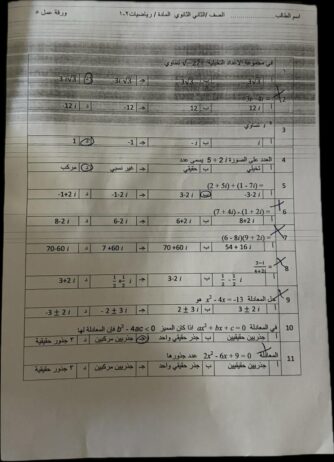 اسم الطالب ............ الصف /الثاني الثانوي المادة / رياضيات ٢-١ ورقة عمل ٥
في مجموعة الأعداد التخيلية √-27 تساوي
1
2
أ 12 i ب 12 ج -12 د -12 i
3 تساوي
أ i ب -i ج -1 د 1
4 العدد على الصورة 5 + 2 i يسمى عدد
أ تخيلي ب حقيقي ج غير نسبي د مركب
5 (2 + 5i) + (1 - 7i) =
أ -3-2 i ب 3-2 i ج -1-2 i د -1+2 i
6 (7 + 4i) - (1 + 2i) =
أ 8+2 i ب 6+2 i ج 6-2 i د 8-2 i
7 (6 - 8i)(9 + 2i) =
أ 54 + 16 i ب 70 +60 i ج 7 +60 i د 70-60 i
8
ب 3-2 i د 3+2 i
9 حل المعادلة x² - 4x = -13 هو
أ 3 ± 2 i ب 2 ± 3 i ج - 2 ± 3 i د -3 ± 2 i
10 في المعادلة ax² + bx + c = 0 اذا كان المميز b² - 4ac < 0 فان المعادلة لها
أ جذرين حقيقيين ب جذر حقيقي واحد ج جذرين مركبين د ٣ جذور حقيقية
11 المعادلة 2x² - 6x + 9 = 0 عدد جذورها
أ جذرين حقيقيين ب جذر حقيقي واحد ج جذرين مركبين د ٣ جذور حقيقية